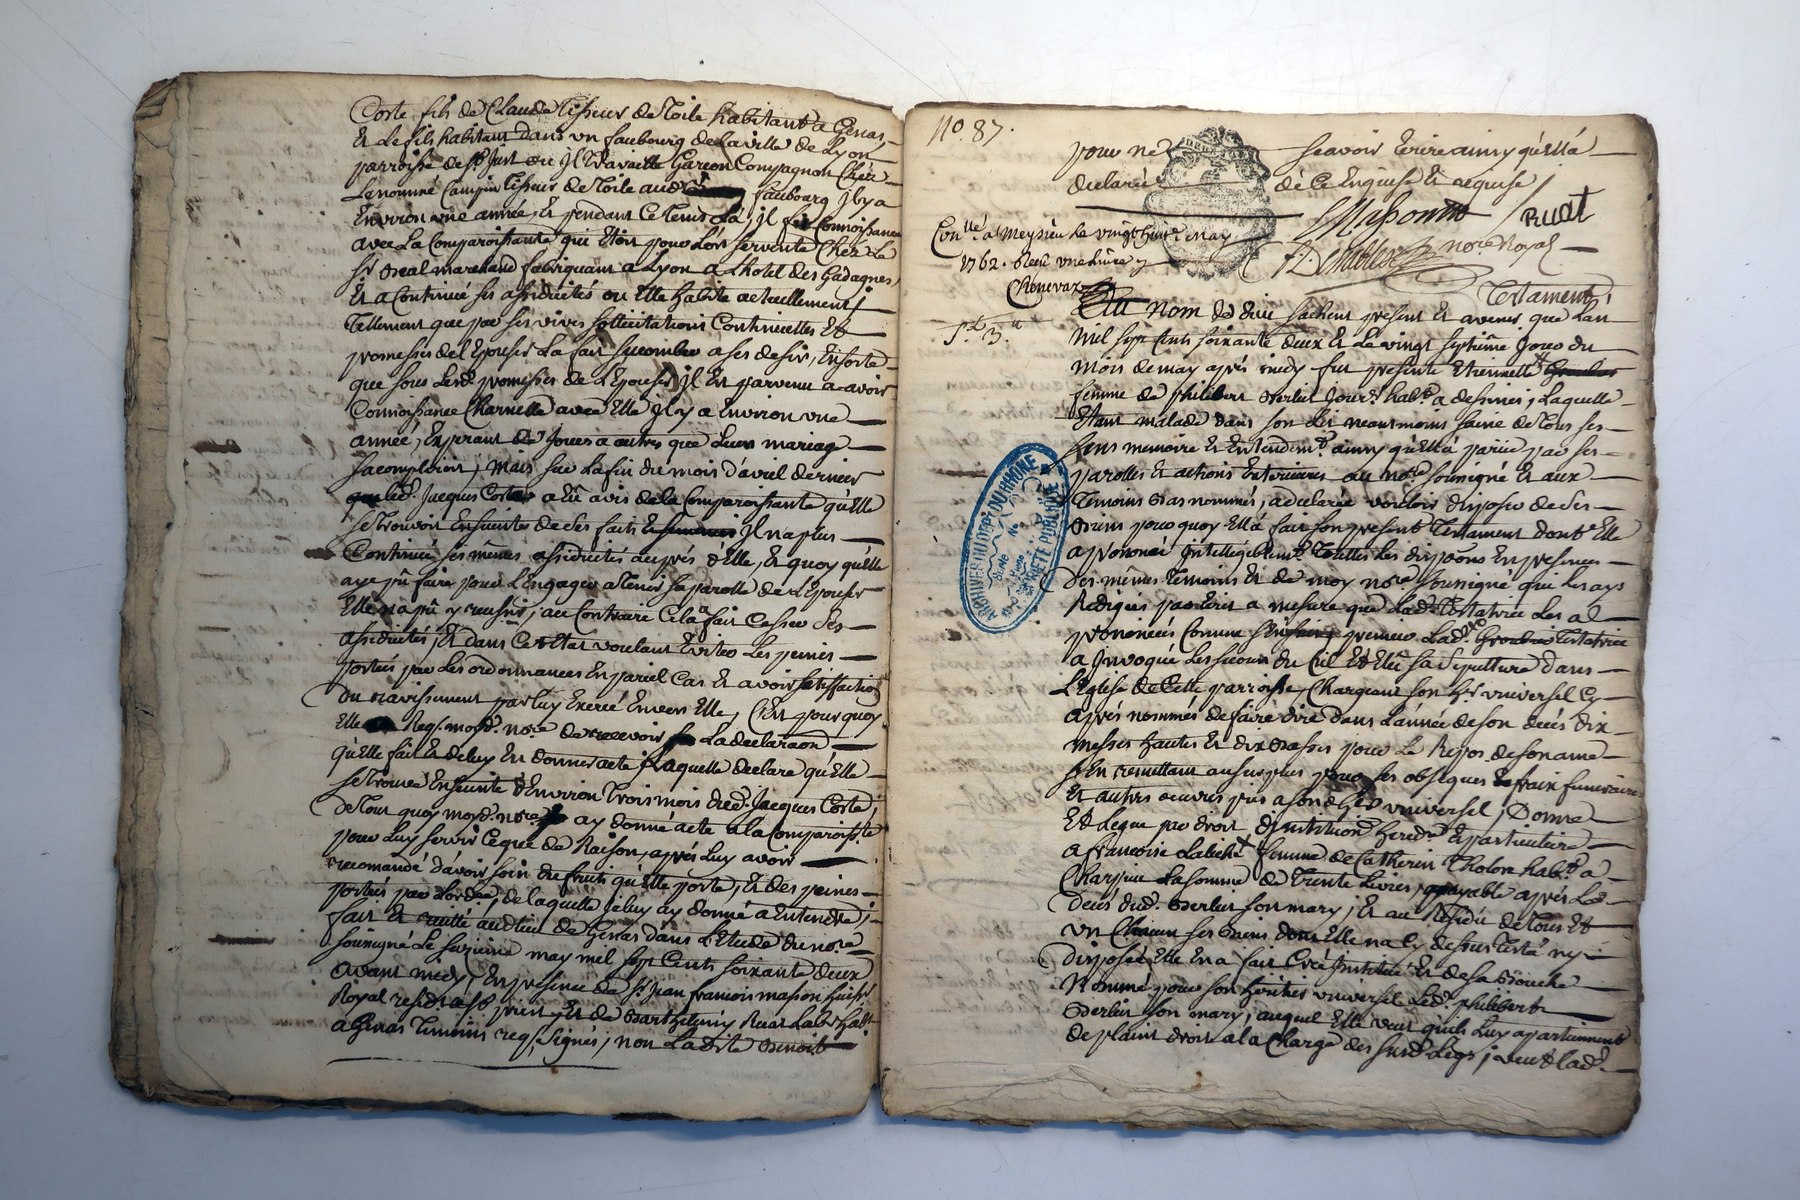 Coste fils de Claude tissieur de toile habitant a Genas
Et le fils habitant dans un faubourg de la ville de Lyon
parroisse de St Just ou jl travaille Garcon Compagnon Chéz
le nommé Campin tissieur de toile aud. faubourg jl y a
Environ une année, Et pendant ce tems là, jl fit Connoissance
avec La Comparoissante qui Etoit pour Lors servente Chéz Le
Sr. Real marchand fabriquant a Lyon a L'hotel des Gadagnes,
Et a Continué ses assiduités ou Elle habite actuellement
Tellement que par ses vives sollicitations Continuelles Et
promesses de l'Epouser La fait sucomber a ses desirs, Ensorte
que sous Lesd. promesses de L'Epouser, jl Est parvenu a avoir
Connoissance Charnelle avec Elle jl y a Environ une
année, Esperant de Jours a autres que Leur mariage
sacompliroit, mais sur La fin du mois d'avril dernier
que led. Jacques Coste a Eû avis de la Comparoissante qu'Elle
se trouvoit Enseinte de ses faits jl n'a plus
Continué ses mêmes assiduités auprés d'Elle, Et quoy qu'Elle
aye pû faire pour L'Engager a tenir sa parolle de L'Epouser
Elle n'a pû y reussir, au Contraire Cela a fait Cesser ses
assiduités, Et dans Cet Etat voulant Eviter Les peines
portées par Les ordonnances En pareil Cas Et avoir satisfaction
du ravissement par luy Exercé Envers Elle, C'Est pourquoy
Elle Req. moyd. nore. de recevoir La declaraon
qu'Elle fait Et de luy En donner acte Laquelle declare qu'Elle
se trouve Enseinte d'Environ trois mois dud. Jacques Coste,
de tout quoy moyd. nore. ay donné acte a la Comparoisste.
pour Luy servir Ce que de Raison, aprés Luy avoir
recomandé d'avoir soin du fruit qu'Elle porte, Et des peines
portées par L'orde., de laquelle je luy ay donné a Entendre,
fait Et recitté aud. lieu de Genas dans L'Etude du nore.
sousigné Le may mil sept Cents soixante deux
avant midy, En presence de Sr. Jean francois masson huissr.
Royal resid. a St priest, Et de Barthelemy Ruat Labr. habt.
a Genas temoins req. signés, non La dite Benoit
No. 87.
pour ne scavoir Ecrire ainsy qu'Ella
declaré de Ce Enquise Et requise
Massonnd Ruat
nore. Royal
Conllé. a Meyzieu Le vingt huit. May
1762. Reçu une livre
Chenevaz
Testament
Au Nom de dieu sachent present Et avenir que Lan
mil sept Cents soixante deux Et Le vingt septiême jour du
mois de may aprés midy fut presente Etiennette
femme de philibert Berlier jourr. habt. a desines, Laquelle
Etant malade dans son Lit neantmoins saine de tous ses
sens memoire Et Entendemt. ainsy qu'Ella parüe par ses
parolles Et actions Exterieures au nore. sousigné Et aux
Temoins Bas nommés, a declaré vouloir disposer de ses
Biens pour quoy Ella fait son present Testament dont Elle
a prononcé jntelligiblemt. toutes Les disposons En presence
des mêmes Temoins Et de moy nore. sousigné qui Les ays
Redigées par Ecrit a mesure que Lad. Testatrice Les a
prononcées Comme sensuit, premier Lad. Testatrice
a jnvoqué Les secours du Ciel Et Elû sa sepulture dans
L'Eglise de Cette parroisse, Chargeant son hr. universel Cy
aprés nommés de faire dire dans L'année de son decés dix
messes hautes Et dix Basses pour Le Repos de son ame
s'En remettant au surplus pour ses obseques Et fraix funeraires
Et autres oeuvres pies a sond. her. universel, Donne
Et Legue par droit d'institution heredre. Et particuliere
a francoise Labiche femme de Catherin Tholon habt. a
Charpieu La somme de trente livres, payable aprés Le
decés dud. Berlier son mary, Et au Residu de tous Et
un Chacun ses Biens dont Elle n'a Cy dessus testé ny
disposé, Elle En a fait Créé jnstitué Et de sa Bouche
Nommé pour son heritier universel Led. philibert
Berlier son mary, auquel Elle veut qu'ils Luy apartiennent
de plaint droit a la Charge des susd. Legs, veut Lad.
ARCHIVES DU DEPt DU RHONE
PROPRIETE PUBLIQUE